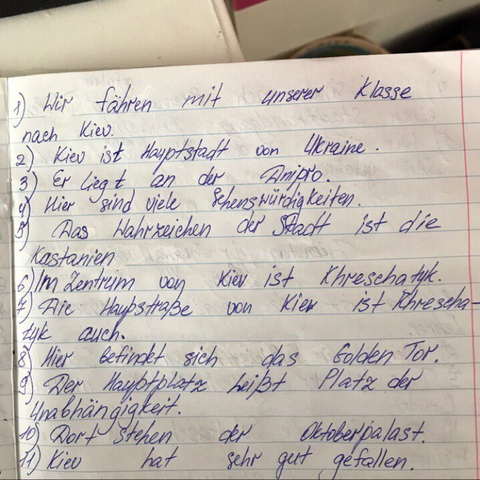 1) Wir fähren mit unserer Klasse
nach Kiev.
2) Kiev ist Hauptstadt von Ukraine.
3) Er liegt an der Dnipro.
4) Hier sind viele Sehenswürdigkeiten.
5) Das Wahrzeichen der Stadt ist die
Kastanien
6) Im Zentrum von Kiev ist Khreschatyk.
7) Die Haupstraße von Kiev ist Khrescha-
tyk auch.
8) Hier befindt sich das Golden Tor.
9) Der Hauptplatz heißt Platz der
Unabhängigkeit.
10) Dort stehen der Oktoberpalast.
11) Kiev hat sehr gut gefallen.